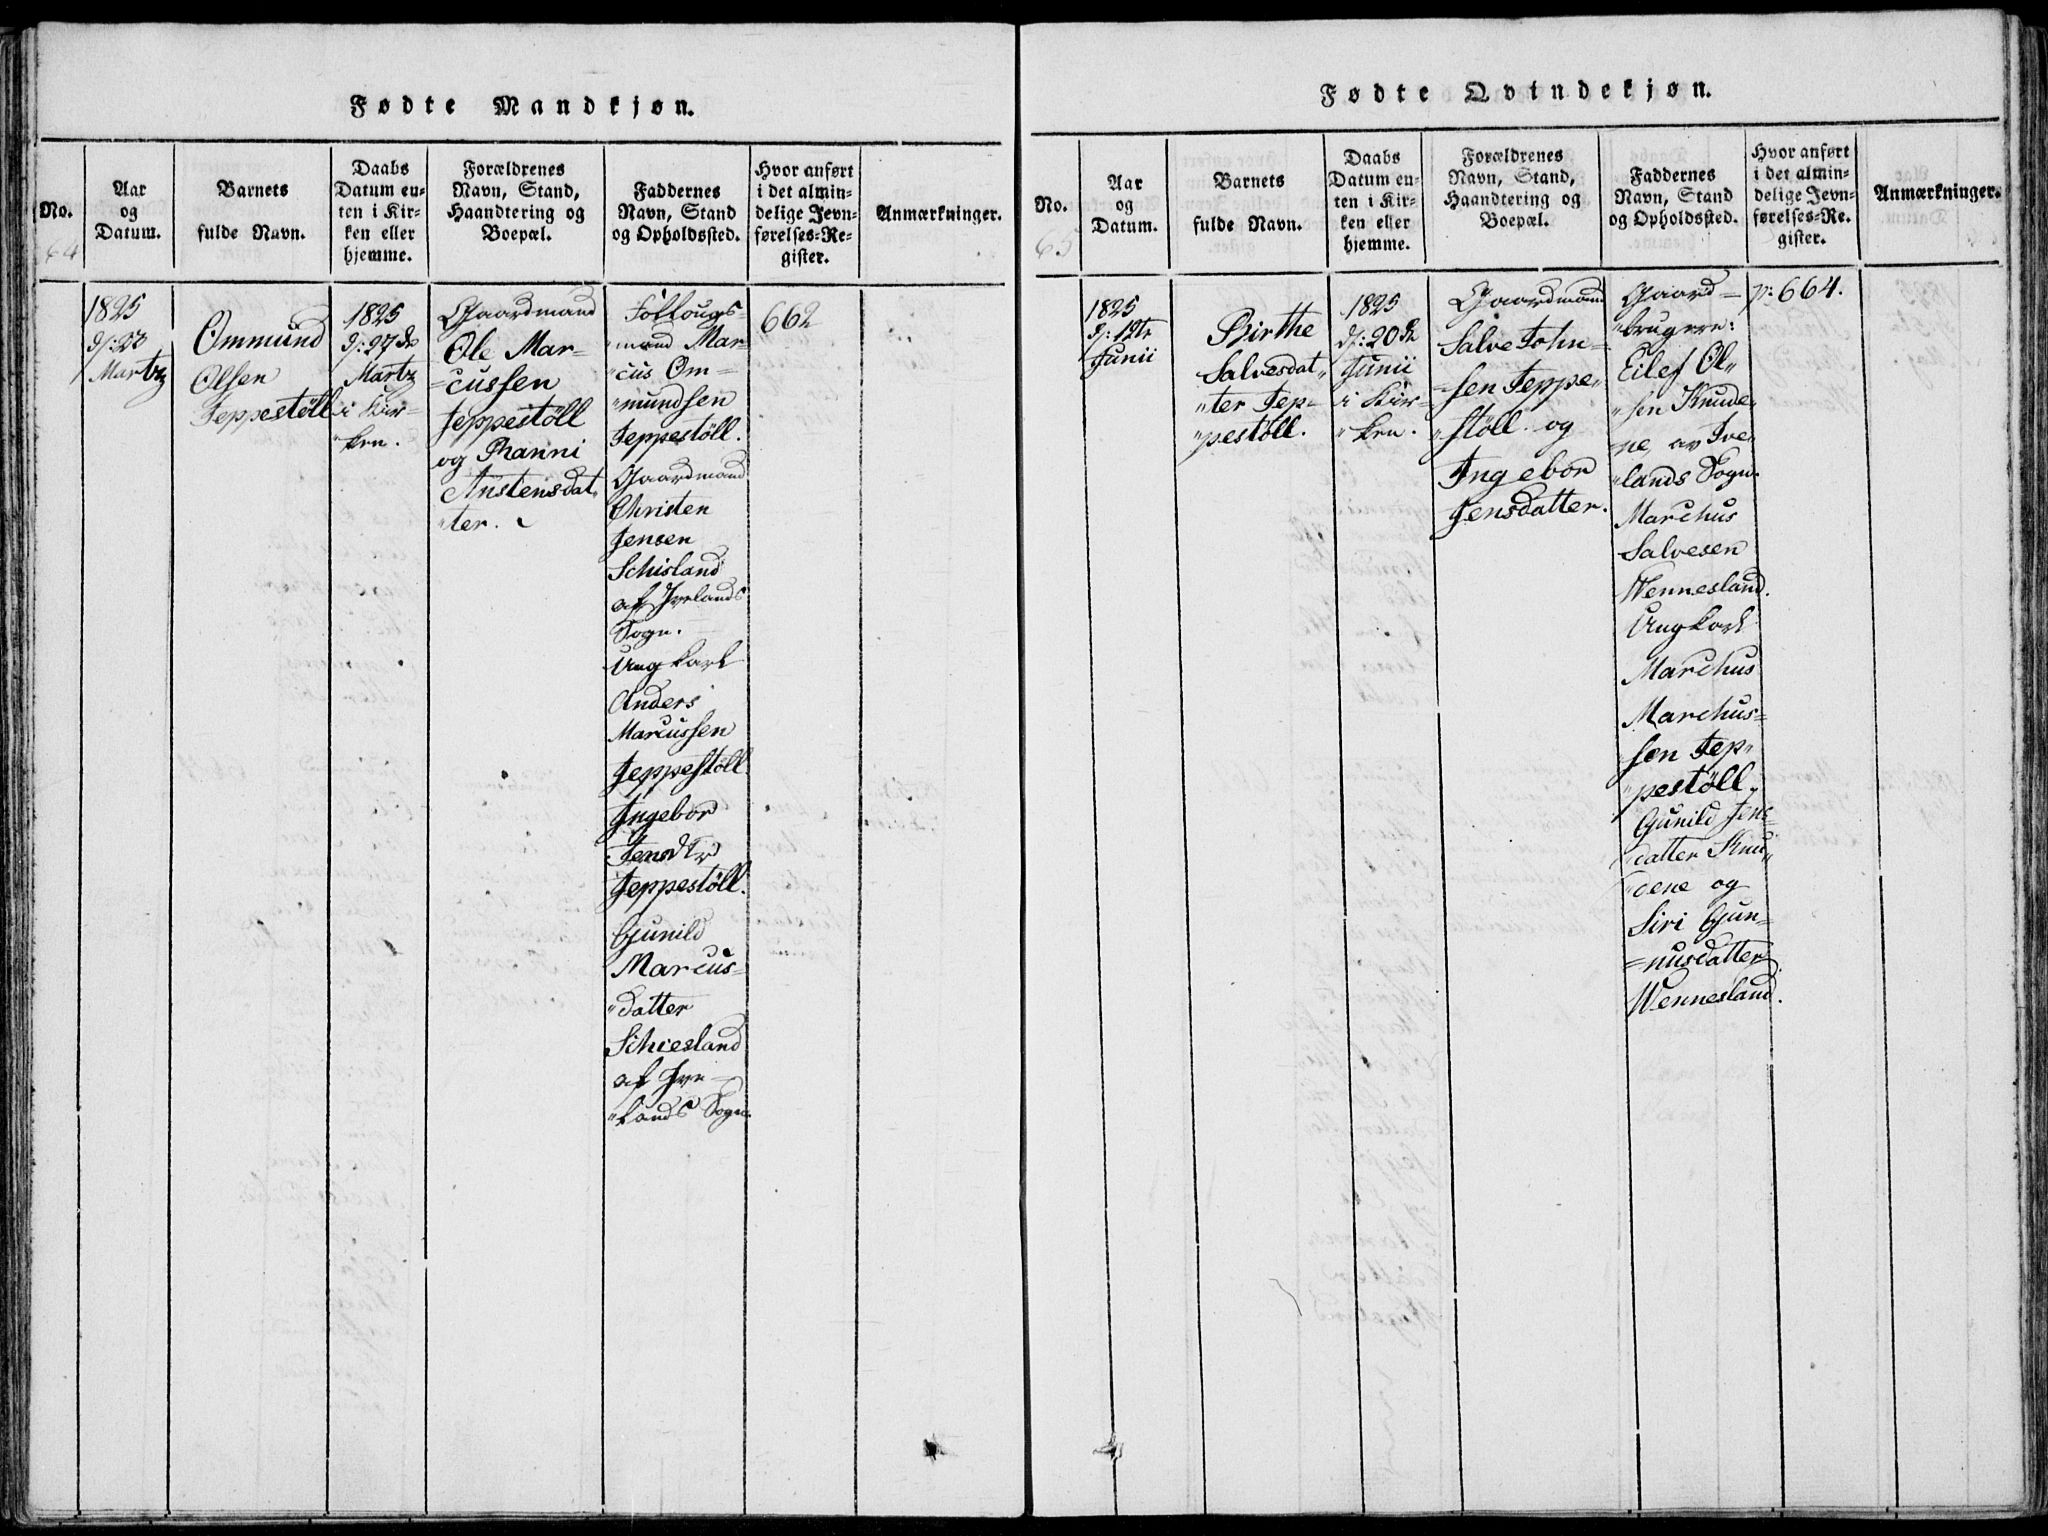 Fødte Mandkjøn.
No.
64
Aar
og
Datum.
Barnets
fulde Navn.
Daabs
Datum en-
ten i Kir-
ken eller
hjemme.
Forældrenes
Navn, Stand,
Haandtering og
Boepæl.
Faddernes
Navn, Stand
og Opholdssted.
Hvor anført
i det almin-
delige Jevn-
førelses-Re-
gister.
Anmærkninger.
1825
d: 23
Martz
Ommund
Olsen
Jeppestöll
1825
d: 27de
Martz
i Kir-
ken.
Gaardmand
Ole Mar-
=cussen
Jeppestöll
og Ranni
Austensdat„
"ter.
Föllougs-
mand Mar-
"cus Om-
"mundsen
Jeppestöll.
Gaardmand
Christen
Jensen
Schisland
af Ivelands
Sogn.
Ungkarl
Anders
Marcussen
Jeppestöll
Ingebor
Jensdtr
Jeppestöll.
Gunild
Marcus-
"datter
Schiesland
af Ive-
"lands Sogn.
662
Fødte Qvindekjøn.
No.
65
Aar
og
Datum.
Barnets
fulde Navn.
Daabs
Datum en-
ten i Kir-
ken eller
hjemme.
Forældrenes
Navn, Stand,
Haandtering og
Boepæl.
Faddernes
Navn, Stand
og Opholdssted.
Hvor anført
i det almin-
delige Jevn-
førelses-Re-
gister.
Anmærkninger.
1825
d: 12te
Junii
Birthe
Salvesdat„
"ter Jep-
"pestöll.
1825
d: 20de
Junii
i Kir-
"ken.
Gaardmand
Salve John-
=sen Jeppe„
"stöll og
Ingebor
Jensdatter.
Gaard-
"brugere:
Eilef Ol„
"sen Knude„
ne av Ive„
"lands Sogn.
Marchus
Salvesen
Wennesland.
Ungkarl
Marchus
Marchus=
sen Jep„
"pestöll.
Gunild Jens-
"datter Knu„
"dene og
Siri Gun-
=nusdatter
Wennesland.
p: 664.